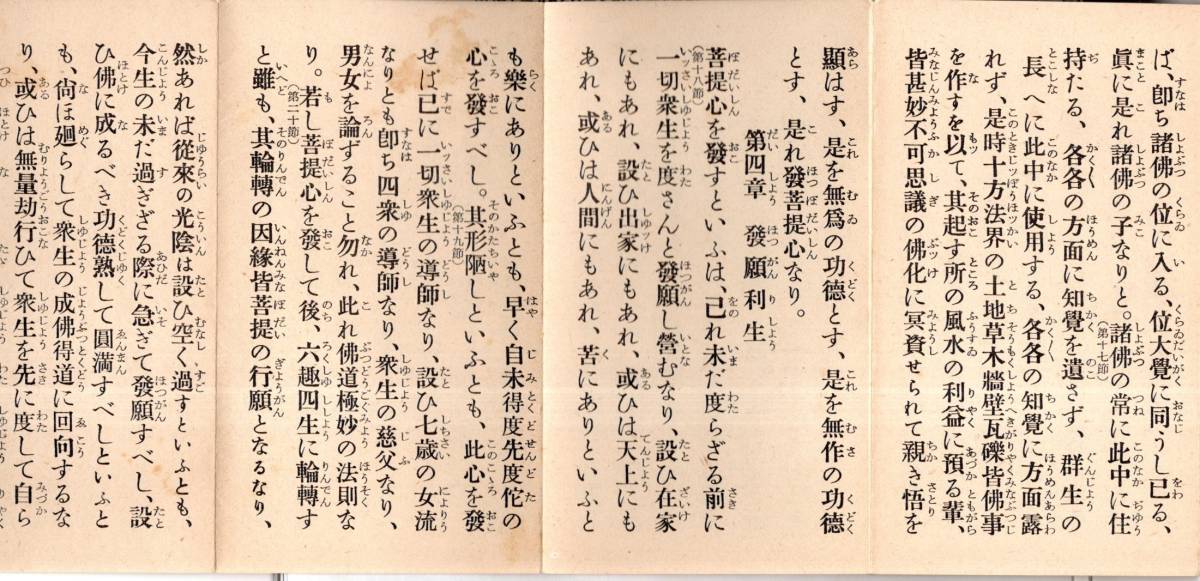 ば、卽ち諸佛の位に入る、位大覺に同うし已る、
眞に是れ諸佛の子なりと。(第十七節)諸佛の常に此中に住
持たる、各各の方面に知覺を遺さず、群生の
長へに此中に使用する、各各の知覺に方面露
れず、是時十方法界の土地草木牆壁瓦礫皆佛事
を作すを以て、其起す所の風水の利益に預る輩、
皆甚妙不可思議の佛化に冥資せられて親き悟を
顯はす、是を無爲の功德とす、是を無作の功德
とす、是れ發菩提心なり。
第四章 發願利生
(第十八節)菩提心を發すといふは、己れ未だ度らざる前に
一切衆生を度さんと發願し營むなり、設ひ在家
にもあれ、設ひ出家にもあれ、或ひは天上にも
あれ、或ひは人間にもあれ、苦にありといふと
も樂にありといふとも、早く自未得度先度佗の
心を發すべし。(第十九節)其形陋しといふとも、此心を發
せば已に一切衆生の導師なり、設ひ七歲の女流
なりとも卽ち四衆の導師なり、衆生の慈父なり、
男女を論ずること勿れ、此れ佛道極妙の法則な
り。(第二十節)若し菩提心を發して後、六趣四生に輪轉す
と雖も、其輪轉の因緣皆菩提の行願となるなり、
然あれば從來の光陰は設ひ空く過すといふとも、
今生の未だ過ぎざる際に急ぎて發願すべし、設
ひ佛に成るべき功德熟して圓滿すべしといふと
も、尙ほ廻らして衆生の成佛得道に回向するな
り、或ひは無量劫行ひて衆生を先に度して自ら